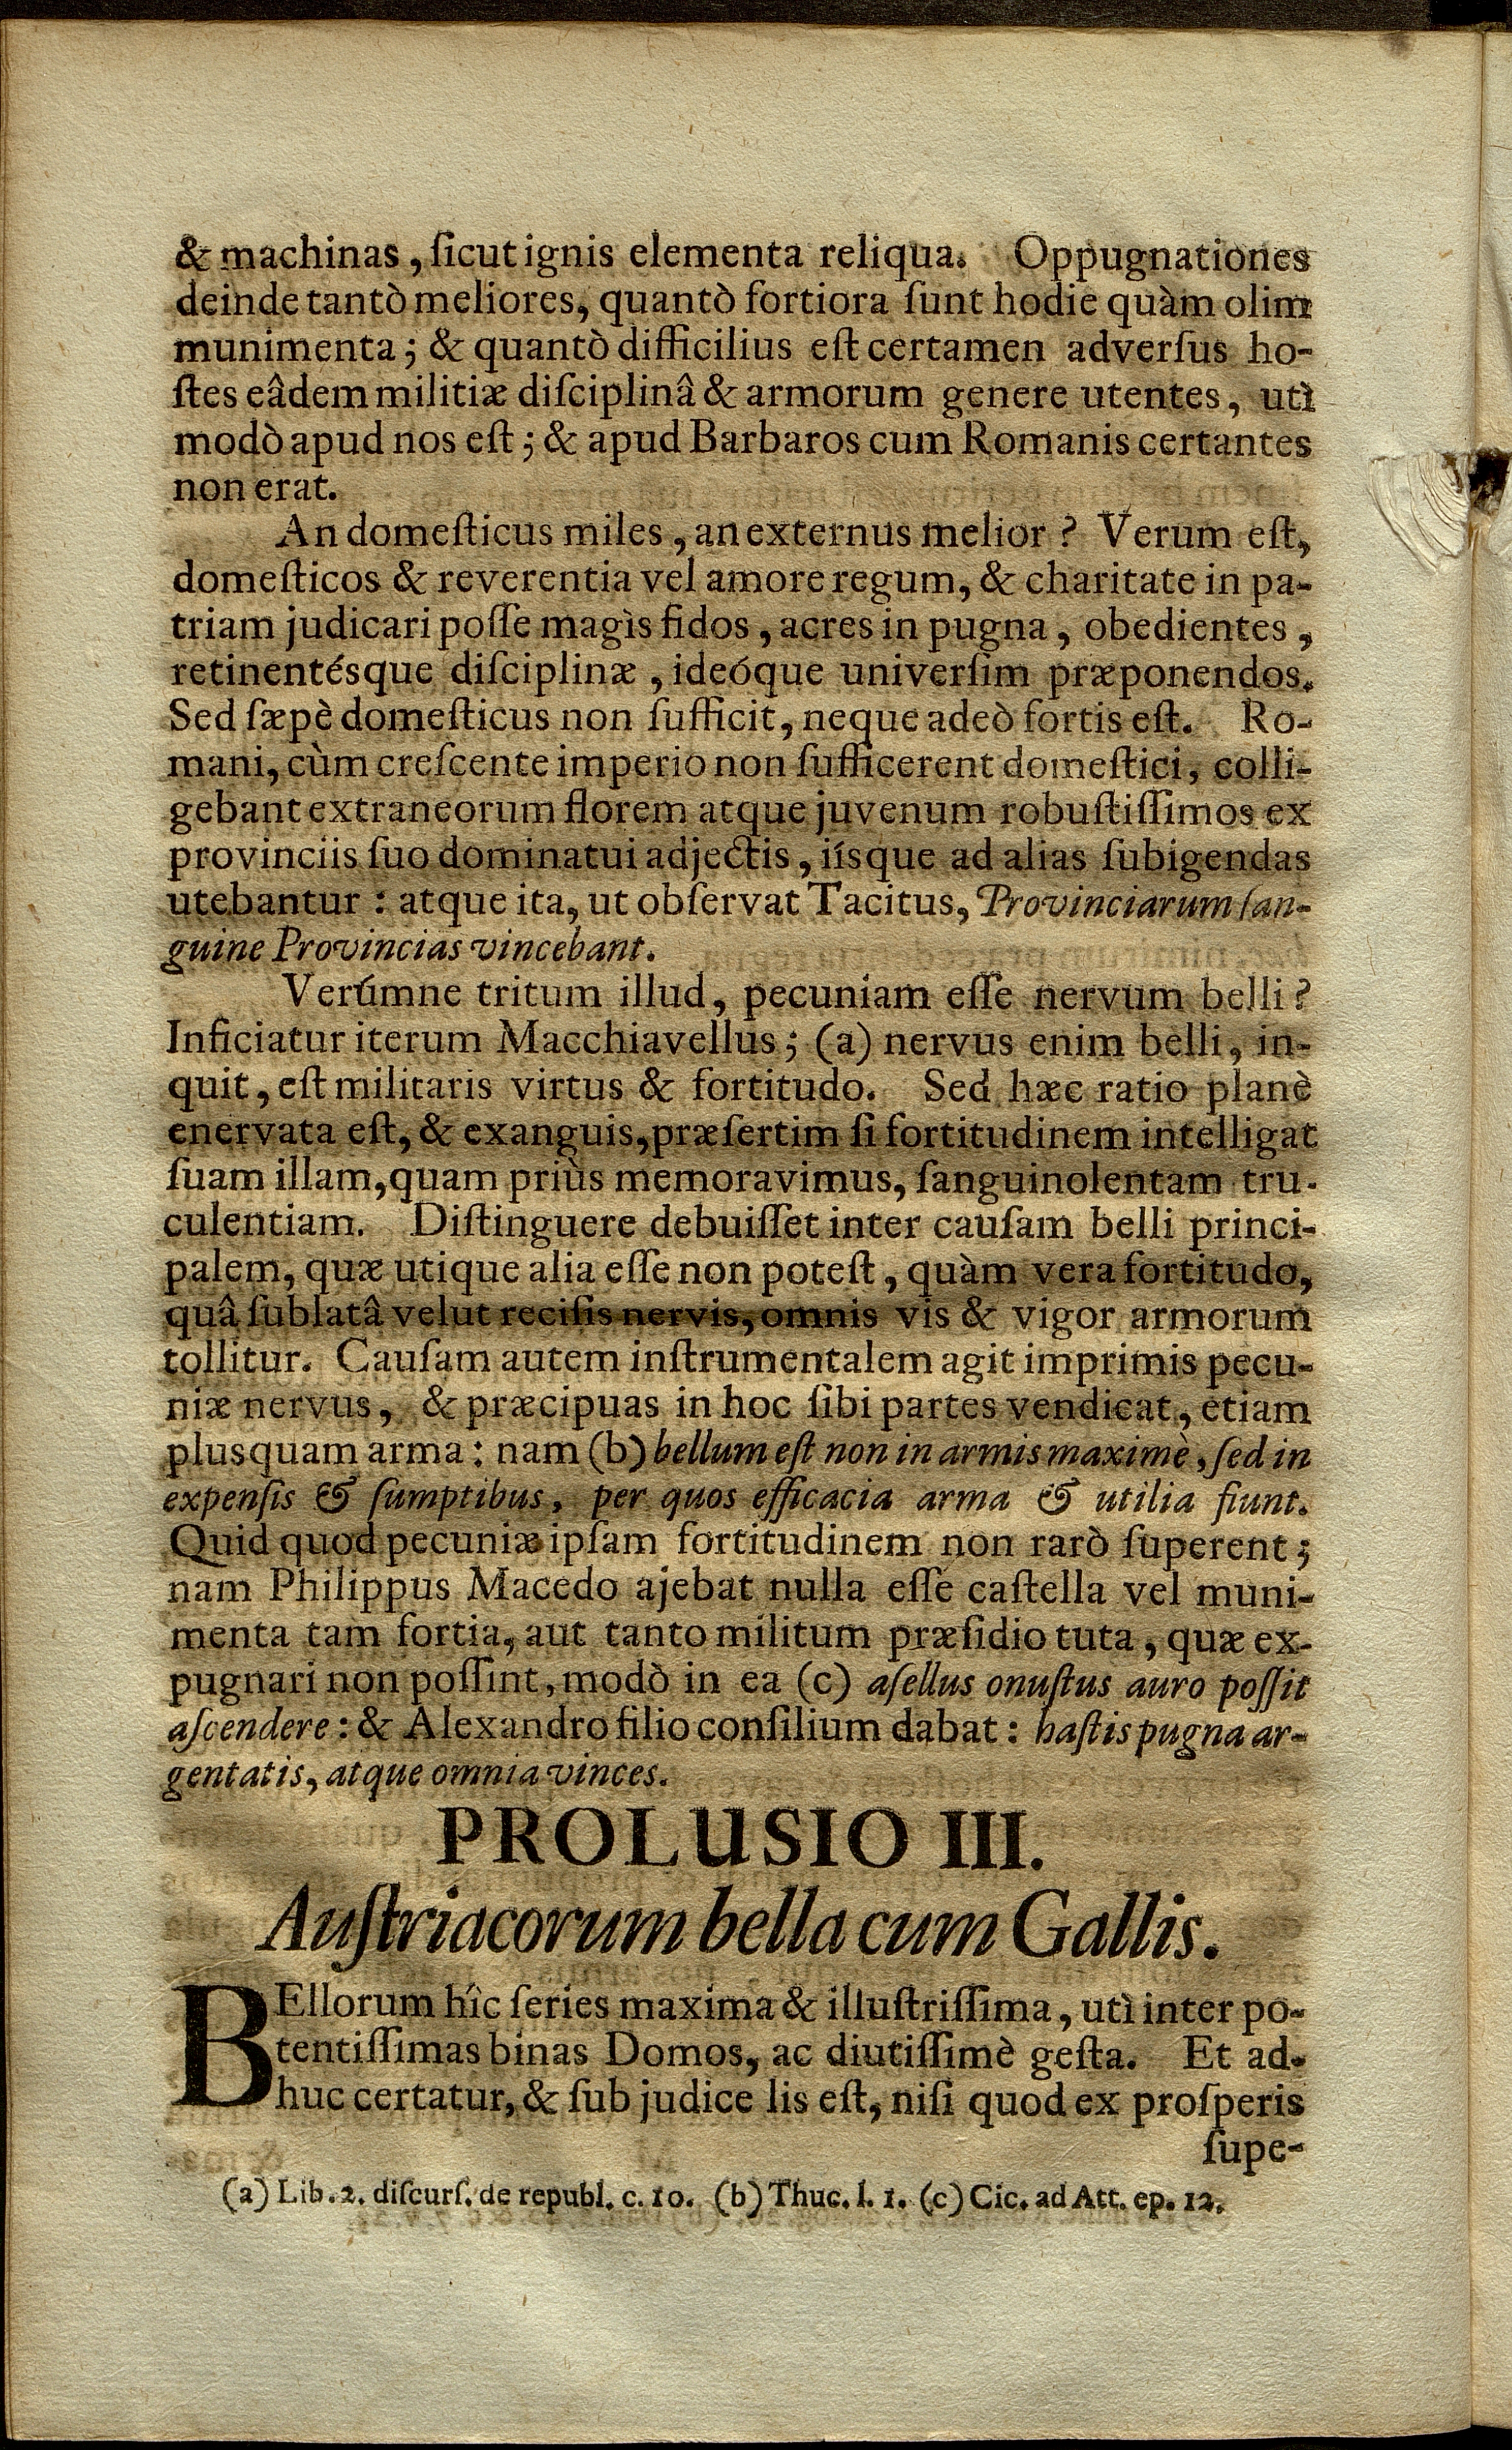 & machinas, ſicut ignis elementa reliqua. Oppugnationes
deinde tantò meliores, quantò fortiora ſunt hodie quàm olim
munimenta; & quantò difficilius eſt certamen adverſus ho-
ſtes eâdem militiæ diſciplinâ & armorum genere utentes, utì
modò apud nos eſt; & apud Barbaros cum Romanis certantes
non erat.
An domeſticus miles, an externus melior? Verum eſt,
domeſticos & reverentia vel amore regum, & charitate in pa-
triam judicari poſſe magìs fidos, acres in pugna, obedientes,
retinentésque diſciplinæ, ideóque univerſim præponendos.
Sed ſæpè domeſticus non ſufficit, neque adeò fortis eſt. Ro-
mani, cùm creſcente imperio non ſufficerent domeſtici, colli-
gebant extraneorum florem atque juvenum robuſtiſſimos ex
provinciis ſuo dominatui adjectis, iísque ad alias ſubigendas
utebantur: atque ita, ut obſervat Tacitus, Provinciarum ſan-
guine Provincias vincebant.
Verúmne tritum illud, pecuniam eſſe nervum belli?
Inficiatur iterum Macchiavellus; (a) nervus enim belli, in-
quit, eſt militaris virtus & fortitudo. Sed hæc ratio planè
enervata eſt, & exanguis, præſertim ſi fortitudinem intelligat
ſuam illam, quam priùs memoravimus, ſanguinolentam tru-
culentiam. Diſtinguere debuiſſet inter cauſam belli princi-
palem, quæ utique alia eſſe non poteſt, quàm vera fortitudo,
quâ ſublatâ velut reciſis nervis, omnis vis & vigor armorum
tollitur. Cauſam autem inſtrumentalem agit imprimis pecu-
niæ nervus, & præcipuas in hoc ſibi partes vendicat, etiam
plusquam arma: nam (b) bellum eſt non in armis maximè, ſed in
expenſis & ſumptibus, per quos efficacia arma & utilia fiunt.
Quid quod pecuniæ ipſam fortitudinem non rarò ſuperent;
nam Philippus Macedo ajebat nulla eſſe caſtella vel muni-
menta tam fortia, aut tanto militum præſidio tuta, quæ ex-
pugnari non poſſint, modò in ea (c) aſellus onuſtus auro poſſit
aſcendere: & Alexandro filio conſilium dabat: haſtis pugna ar-
gentatis, atque omnia vinces.
PROLUSIO III.
Auſtriacorum bella cum Gallis.
BEllorum hîc ſeries maxima & illuſtriſſima, utì inter po-
tentiſſimas binas Domos, ac diutiſſimè geſta. Et ad-
huc certatur, & ſub judice lis eſt, niſi quod ex proſperis
ſupe-
(a) Lib. 2. diſcurſ. de republ. c. 10. (b) Thuc. l. 1. (c) Cic. ad Att. ep. 12.